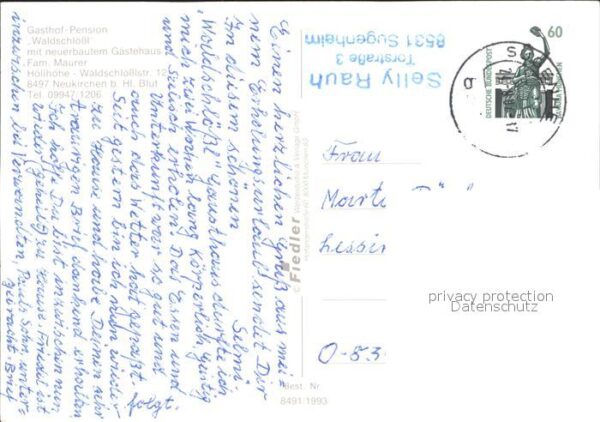 Gasthof-Pension
"Waldschlößl"
mit neuerbautem Gästehaus
Fam. Maurer
Höllhöhe - Waldschloßlstr. 12
8497 Neukirchen b. Hl. Blut
Tel. 09947/1206
Einen herzlichen Gruß aus mei-
nem Erholungsurlaub sendet Dir
Selmi.
In diesem schönen
"Waldschlößl" Gasthaus durfte ich
mich zwei Wochen lang körperlich, geistig
und seelisch erholen! Das Essen und
Unterkunft war so gut und
auch das Wetter hat gepaßt.
Seit gestern bin ich nun wieder
zu Hause und habe Deinen sehr
traurigen Brief dankend erhalten.
Ich hoffe Du bist inzwischen nun
wieder zu Hause. Friedel ist
inzwischen bei Verwandten, Sohn, unter-
gebracht. Brief
folgt.
© Fiedler
Best. Nr.
8491/1993
Selly Rauh
Torstraße 3
8531 Sugenheim
DEUTSCHE BUNDESPOST
60
Frau
Marta
Lessin
O-53
privacy protection
Datenschutz